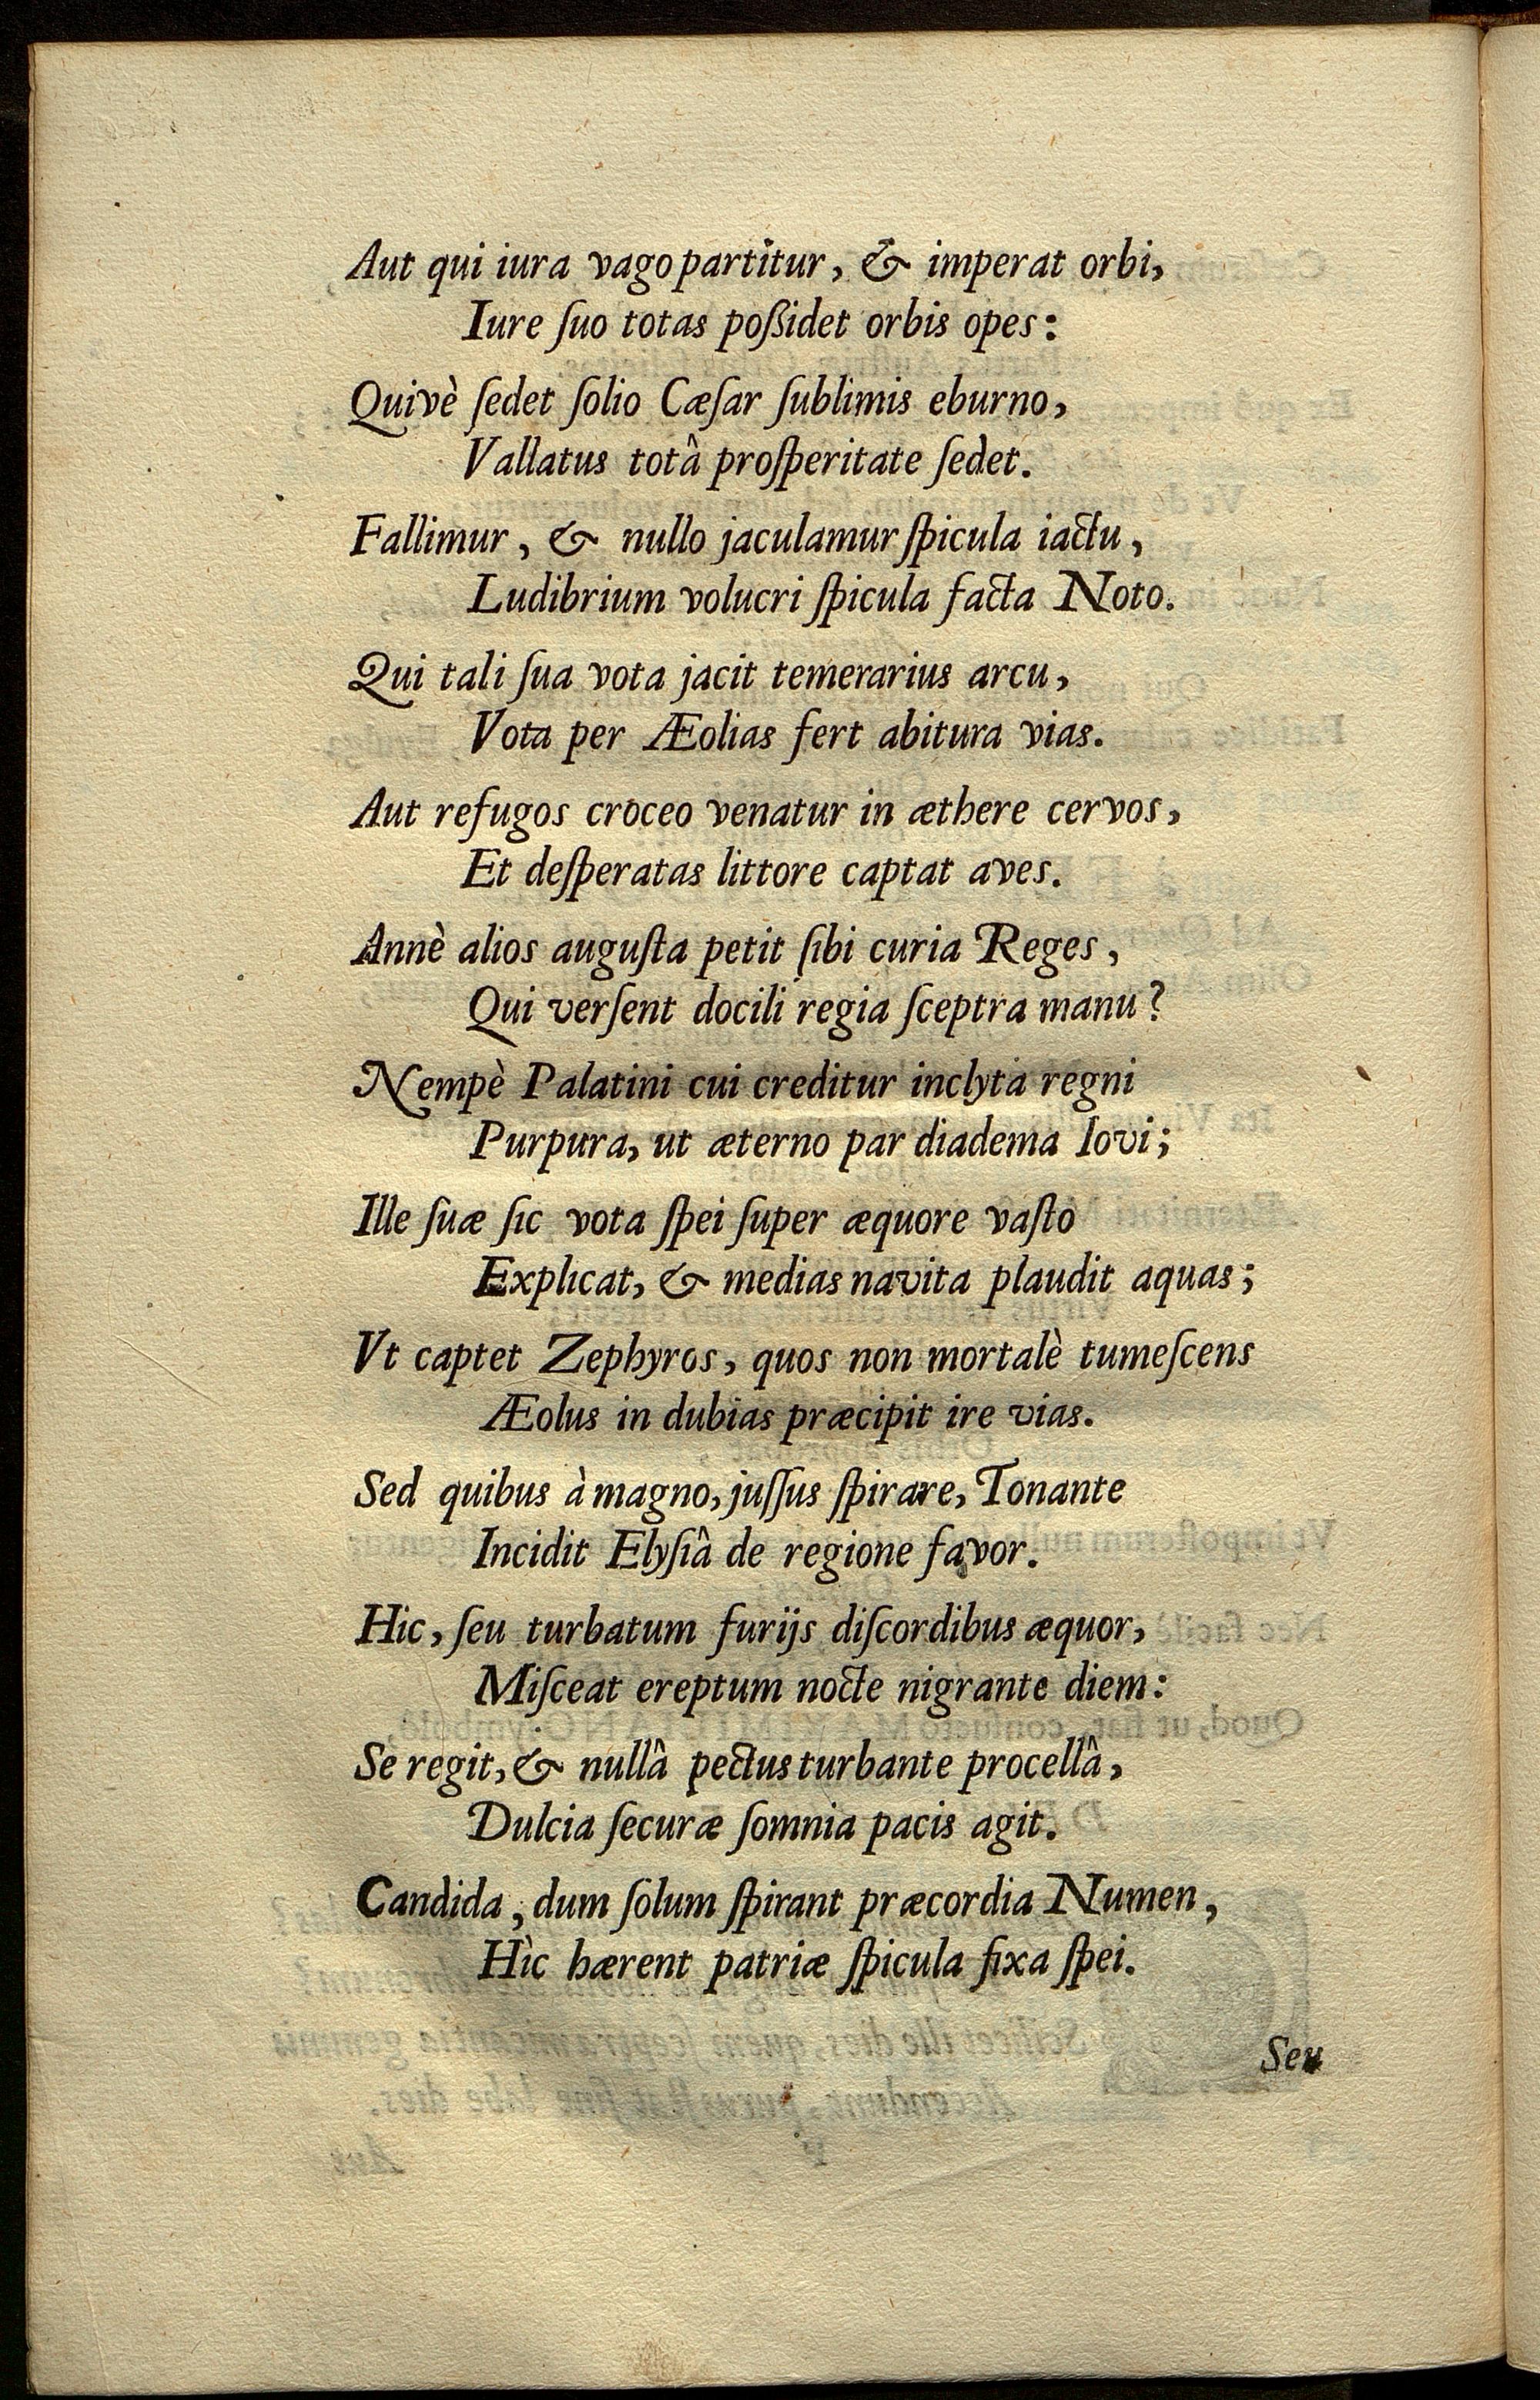 Aut qui iura vago partitur, & imperat orbi,
Iure ſuo totas poßidet orbis opes:
Quivè ſedet ſolio Cæſar ſublimis eburno,
Vallatus totâ proſperitate ſedet.
Fallimur, & nullo jaculamur ſpicula iactu,
Ludibrium volucri ſpicula facta Noto.
Qui tali ſua vota jacit temerarius arcu,
Vota per Æolias fert abitura vias.
Aut refugos croceo venatur in æthere cervos,
Et deſperatas littore captat aves.
Annè alios auguſta petit ſibi curia Reges,
Qui verſent docili regia ſceptra manu?
Nempè Palatini cui creditur inclyta regni
Purpura, ut æterno par diadema Iovi;
Ille ſuæ ſic vota ſpei ſuper æquore vaſto
Explicat, & medias navita plaudit aquas;
Vt captet Zephyros, quos non mortalè tumeſcens
Æolus in dubias præcipit ire vias.
Sed quibus à magno, juſſus ſpirare, Tonante
Incidit Elyſiâ de regione favor.
Hic, ſeu turbatum furijs diſcordibus æquor,
Miſceat ereptum nocte nigrante diem:
Se regit, & nullâ pectus turbante procellâ,
Dulcia ſecuræ ſomnia pacis agit.
Candida, dum ſolum ſpirant præcordia Numen,
Hìc hærent patriæ ſpicula fixa ſpei.
Seu